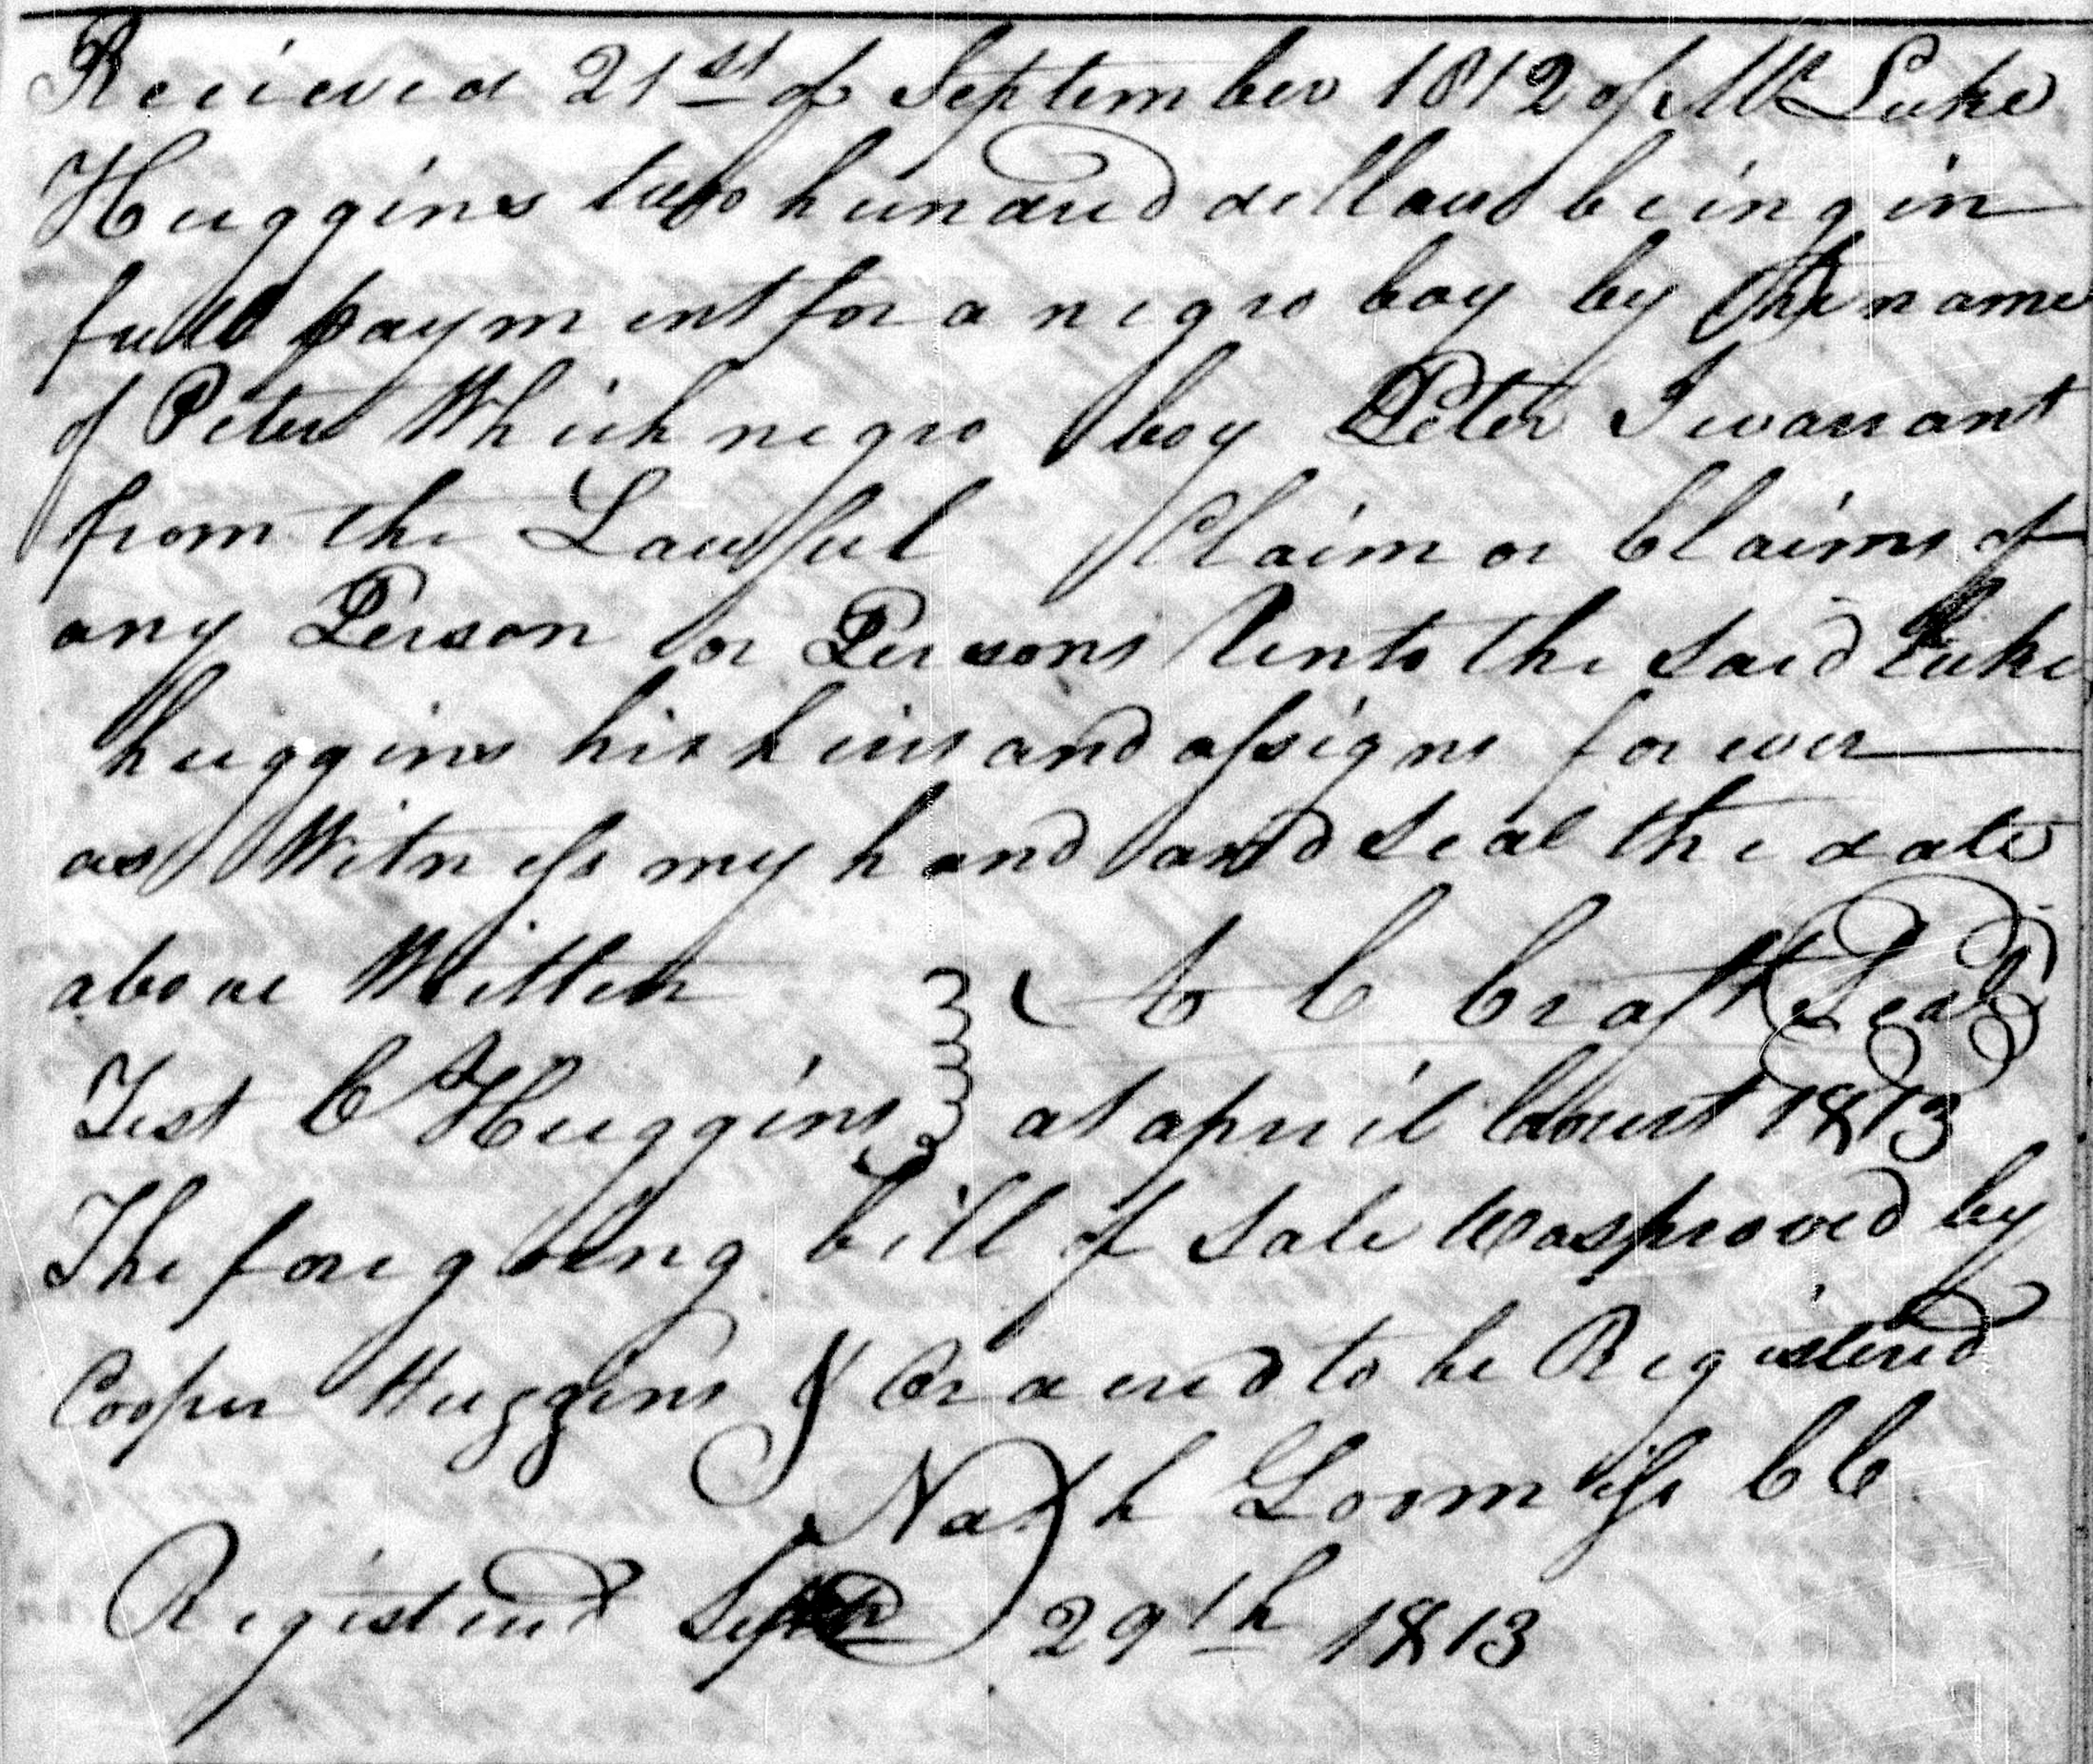 Recieved 21st of September 1812 of Mr Luke
Huggins two hundred dollars being in
full payment for a negro boy by the name
of Peter Which negro boy Peter I warrant
from the Lawful Claim or Claims of
any Person or Persons Unto the said Luke
huggins his heirs and assigns for ever
as Witness my hand and seal the date
above Written C C Craft Seal
Test C Huggins at april Court 1813
The foregoing bill of Sale Was proved by
Cooper Huggins & Ordered to be Registered
Nath Loomiss CC
Registered Septr 29th 1813